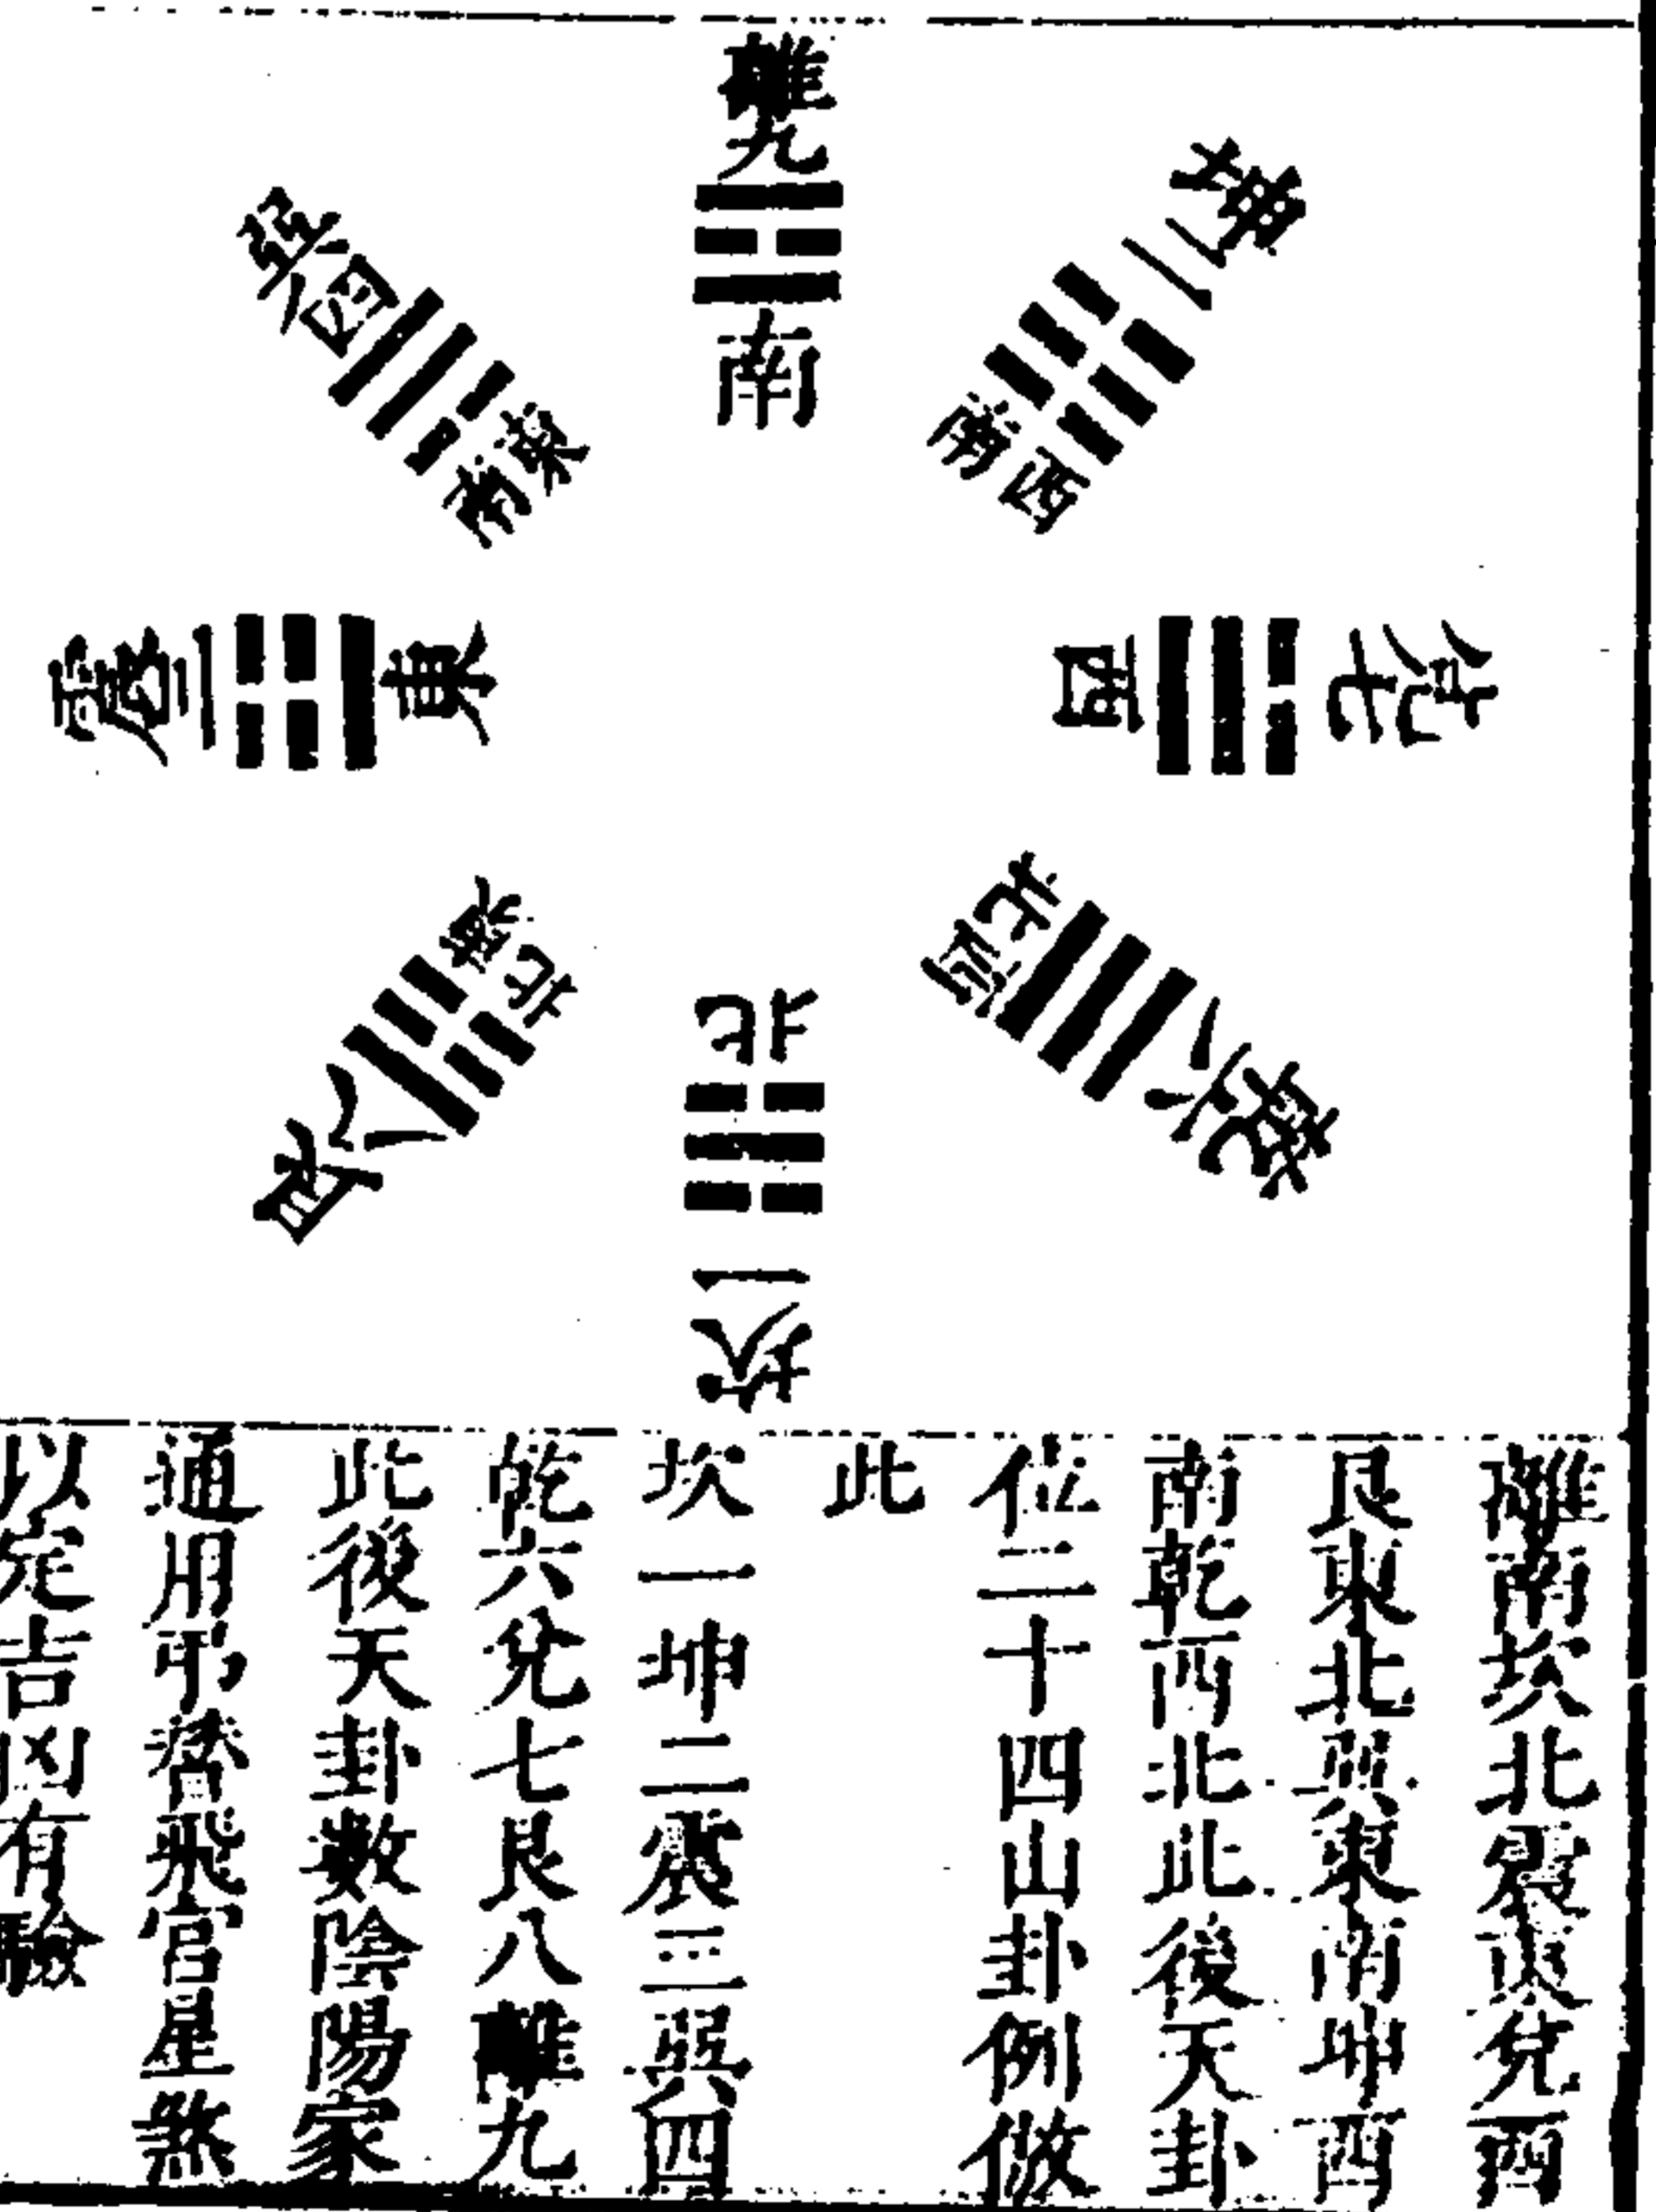 離九
南
坤二
西南
兌七
西
乾六
西北
坎一
北
艮八
東北
震三
東
巽四
東南
離南坎北震東兌西
艮東北巽東南坤西
南乾西北此後天卦
位二十四山卦例倣
此
坎一坤二震三巽四
乾六兌七艮八離九
此後天卦數陰陽家
通用弔替飛宮星煞
以定吉凶有驗